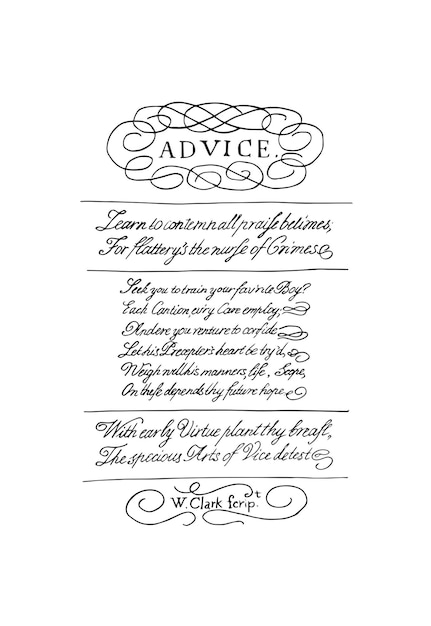 ADVICE.
Learn to contemn all praise betimes;
For flattery's the nurse of Crimes
Seek you to train your fav'rite Boy?
Each Caution ev'ry Care employ;
And ere you venture to confide
Let his Preceptor's heart be try'd,
Weigh well his manners, life, Scope,
On these depends thy future hope
With early Virtue plant thy breast,
The specious Arts of Vice detest
W. Clark scrip.t